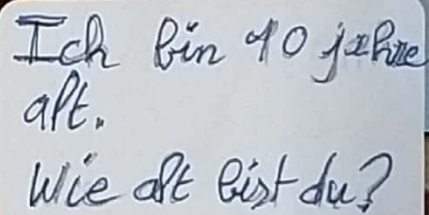 Ich bin 10 jahre
alt.
Wie alt bist du?